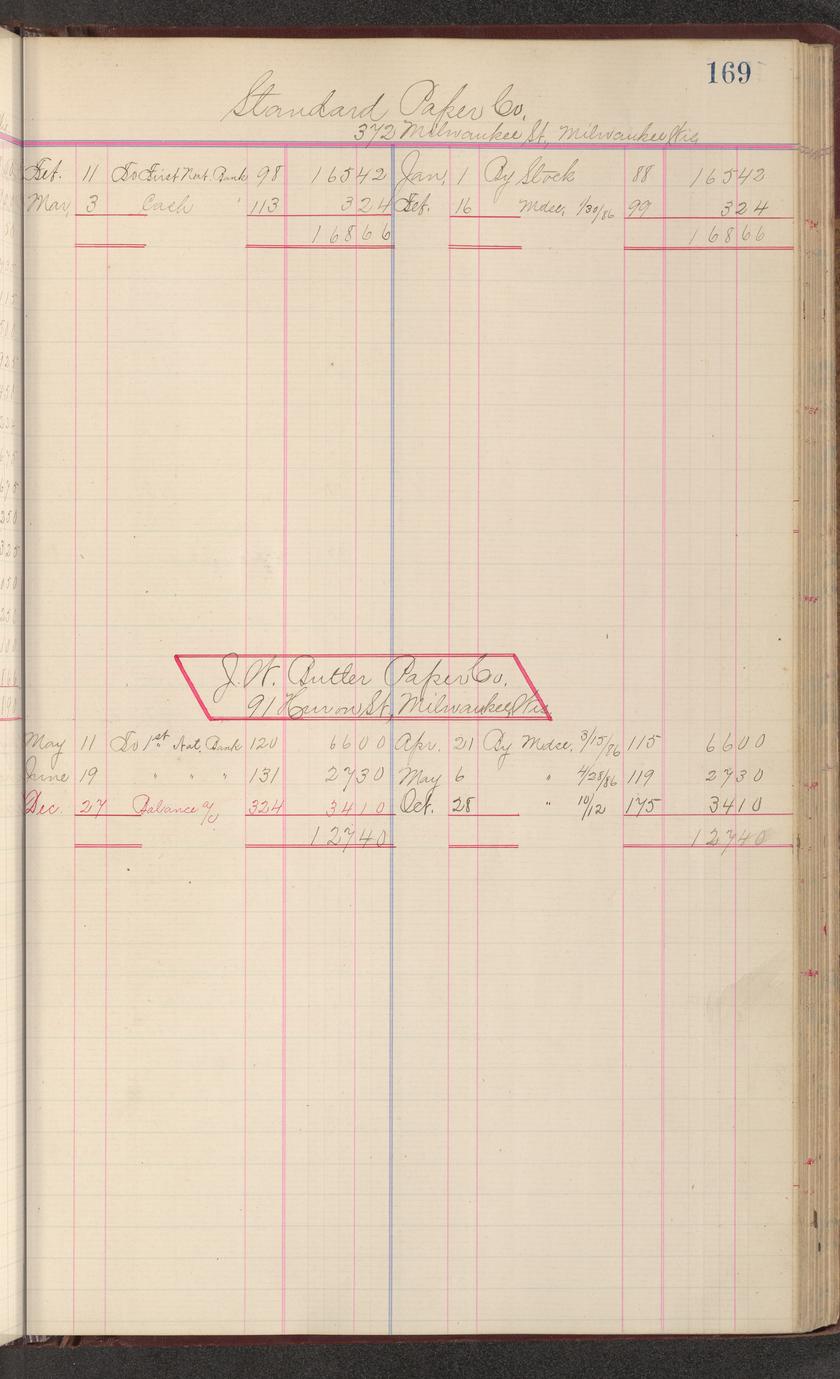 169
Standard Paper Co.
372 Milwaukee St., Milwaukee Wis
Feb. 11 To First Nat. Bank 98 16542 Jan. 1 By Stock 88 16542
Mar. 3 Cash 113 324 Feb. 16 Mdse. 1/30/86 99 324
16866 16866
J. W. Butler Paper Co.
91 Huron St., Milwaukee, Wis
May 11 To 1st Nat. Bank 120 6600 Apr. 21 By Mdse. 3/15/86 115 6600
June 19 " " " 131 2730 May 6 " 4/28/86 119 2730
Dec. 27 Balance a/c 324 3410 Oct. 28 " 10/12 175 3410
12740 12740